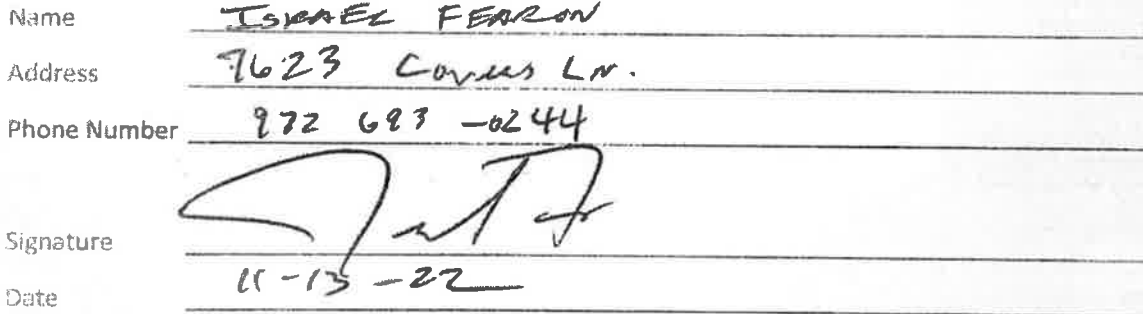 Name ISRAEL FEARON
Address 7623 Coveus Ln.
Phone Number 972 693 -0244
Signature
Date 11-13-22